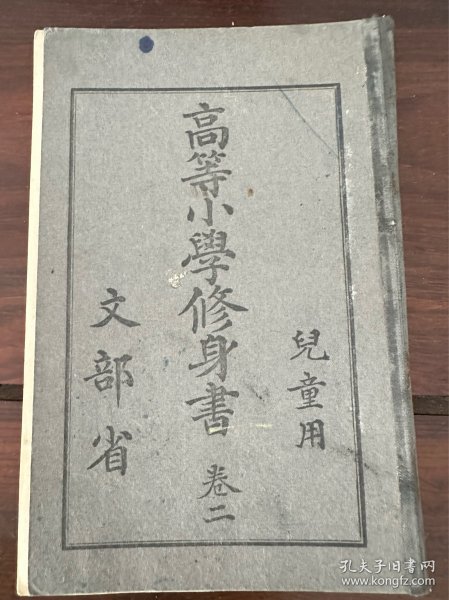 兒童用
高等小學修身書 卷二
文部省
孔夫子旧书网
www.kongfz.com